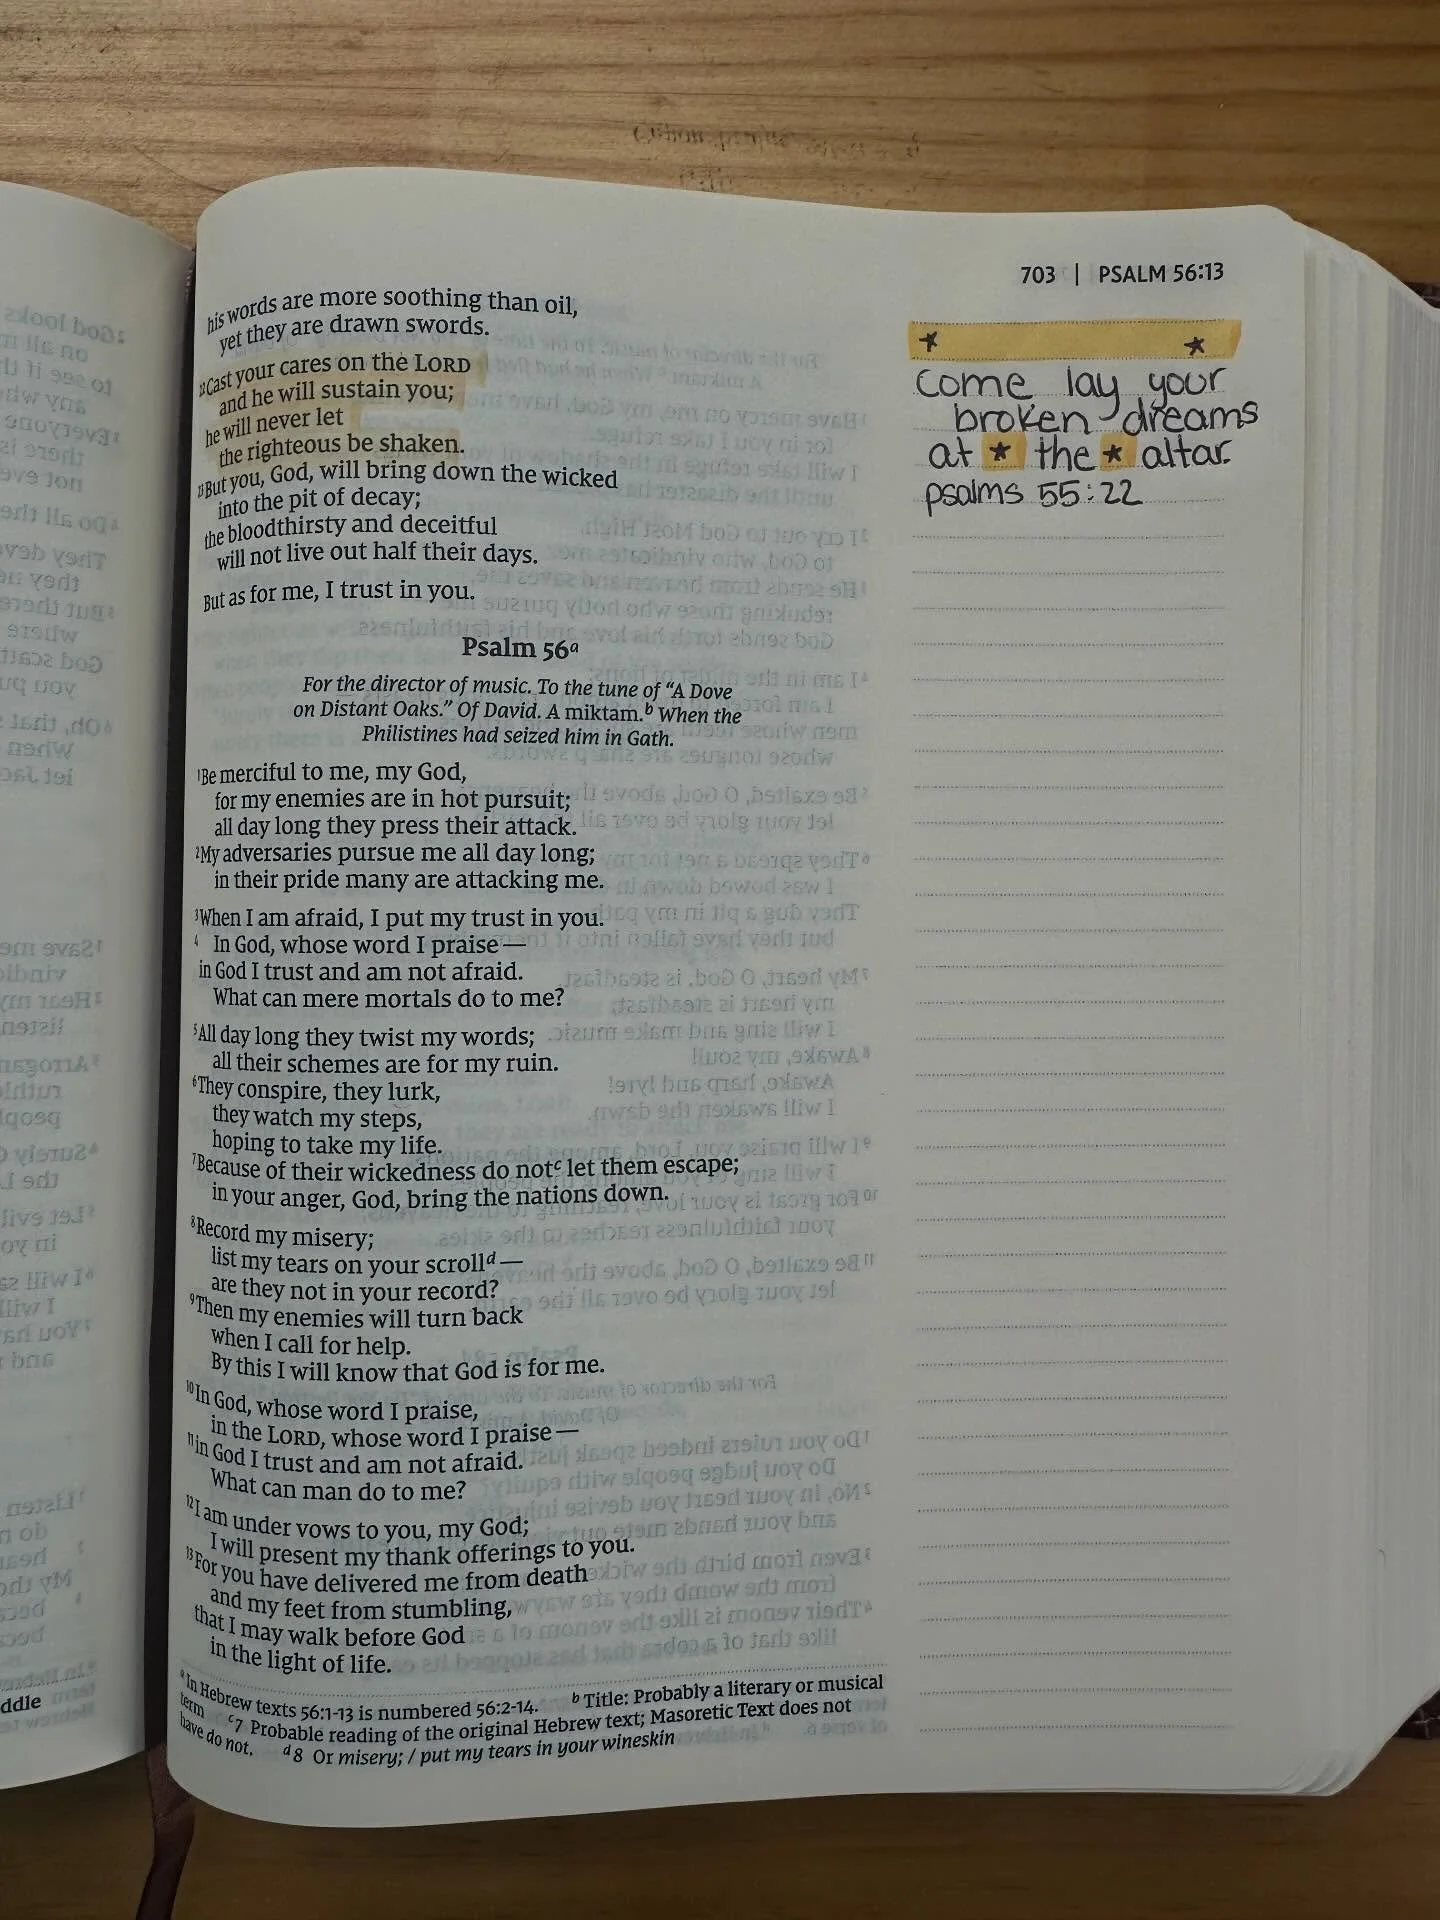 703 | PSALM 56:13
his words are more soothing than oil,
yet they are drawn swords.
22Cast your cares on the LORD
and he will sustain you;
he will never let
the righteous be shaken.
23But you, God, will bring down the wicked
into the pit of decay;
the bloodthirsty and deceitful
will not live out half their days.
But as for me, I trust in you.
Psalm 56a
For the director of music. To the tune of “A Dove
on Distant Oaks.” Of David. A miktam.b When the
Philistines had seized him in Gath.
1Be merciful to me, my God,
for my enemies are in hot pursuit;
all day long they press their attack.
2My adversaries pursue me all day long;
in their pride many are attacking me.
3When I am afraid, I put my trust in you.
4 In God, whose word I praise—
in God I trust and am not afraid.
What can mere mortals do to me?
5All day long they twist my words;
all their schemes are for my ruin.
6They conspire, they lurk,
they watch my steps,
hoping to take my life.
7Because of their wickedness do notc let them escape;
in your anger, God, bring the nations down.
8Record my misery;
list my tears on your scrolld—
are they not in your record?
9Then my enemies will turn back
when I call for help.
By this I will know that God is for me.
10In God, whose word I praise,
in the LORD, whose word I praise—
11in God I trust and am not afraid.
What can man do to me?
12I am under vows to you, my God;
I will present my thank offerings to you.
13For you have delivered me from death
and my feet from stumbling,
that I may walk before God
in the light of life.
a In Hebrew texts 56:1-13 is numbered 56:2-14. b Title: Probably a literary or musical
term c7 Probable reading of the original Hebrew text; Masoretic Text does not
have do not. d8 Or misery; / put my tears in your wineskin
come lay your
broken dreams
at ★ the ★ altar.
psalms 55:22
ddle